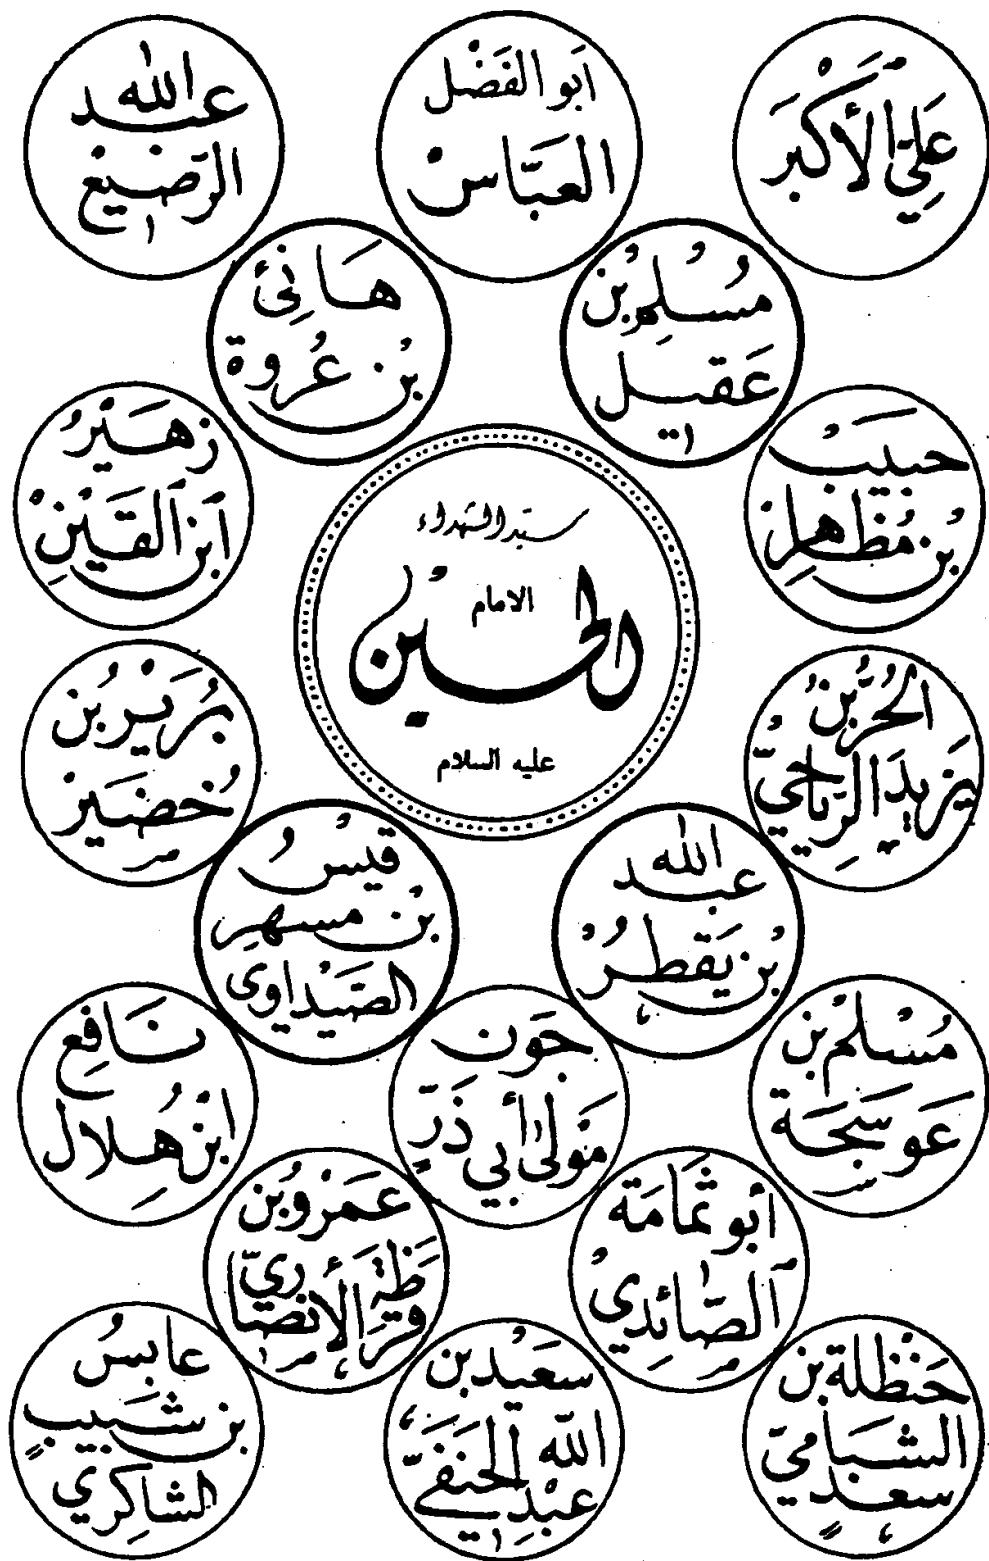 عَلِيّ الأكْبَر
أبو الفَضْل
العَبَّاسْ
عبد الله
الرَّضِيعْ
مُسْلِمُ بْن
عَقيل
هَانِئ
بْن عُروة
حبيبْ
بْن مُظَاهِر
زهَيْرُ
ابْن القَيْنِ
سيد الشهداء
الامام
الحسين
عليه السلام
الحُرّ بْن
يَزيد الرِّيَاحِيّ
بُرَيْرُ بْن
خُضَيْر
عبد الله
بْن يَقطرْ
قَيسُ
بْن مسهر
الصَّيْداوي
مُسْلِمُ بْن
عَوسَجَة
جَوْن
مَوْلَى أبي ذَرّ
نَافِع
ابْن هِلال
أبو ثُمَامَة
الصَّائِدِي
عَمْرو بْن
قَرظَة الأنصَاريّ
حَنْظَلة بْن
سعد الشبَامِيّ
سعيد بْن
عبْدِ اللّه الحَنَفيّ
عابسُ
بْن شَبيبٍ
الشاكِري